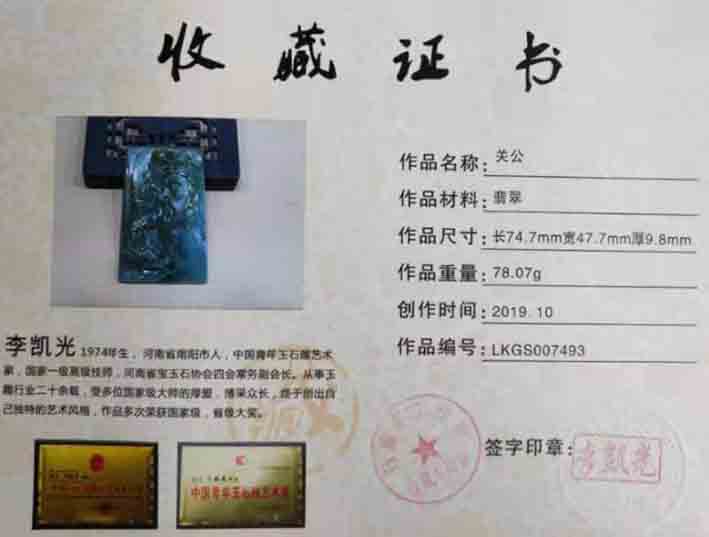 收藏证书
作品名称：关公
作品材料：翡翠
作品尺寸：长74.7mm宽47.7mm厚9.8mm
作品重量：78.07g
创作时间：2019.10
作品编号：LKGS007493
李凯光 1974年生，河南省南阳市人，中国青年玉石雕艺术
家，国家一级高级技师，河南省宝玉石协会四会常务副会长。从事玉
雕行业二十余载，受多位国家级大师的厚盟，博采众长，终于创出自
己独特的艺术风格，作品多次荣获国家级，省级大奖。
中国青年玉石雕艺术家
签字印章：
李凯光